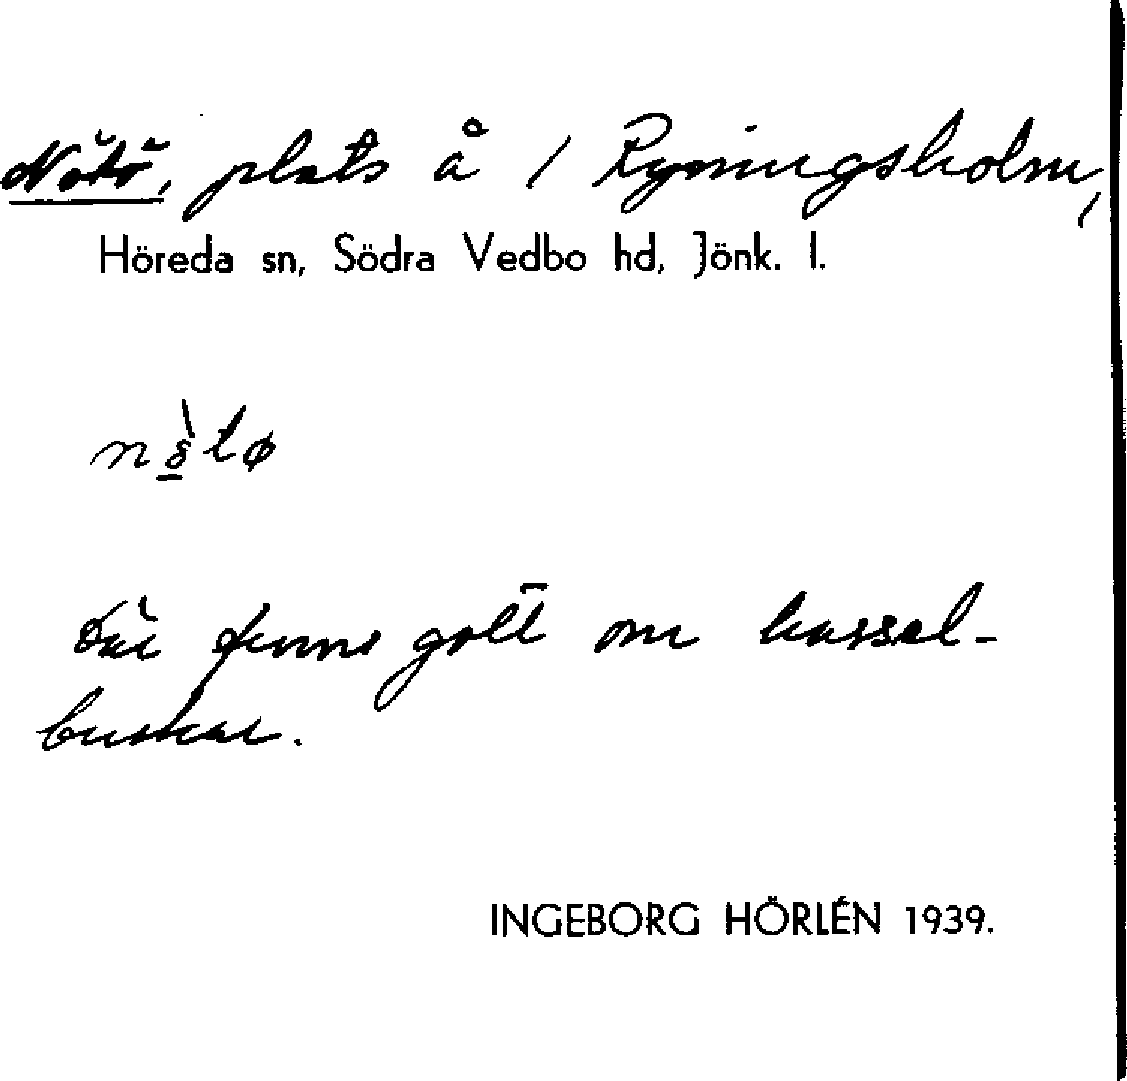 Nötö, plats å / Ryningsholm,
Höreda sn, Södra Vedbo hd, Jönk. l.
Där finns gott om hassel-
buskar.
INGEBORG HÖRLÉN 1939.